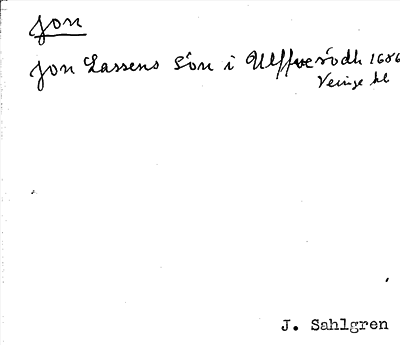 Jon
Jon Lassens Sòn i Ulffveròdh 1686
Veinge kb
J. Sahlgren